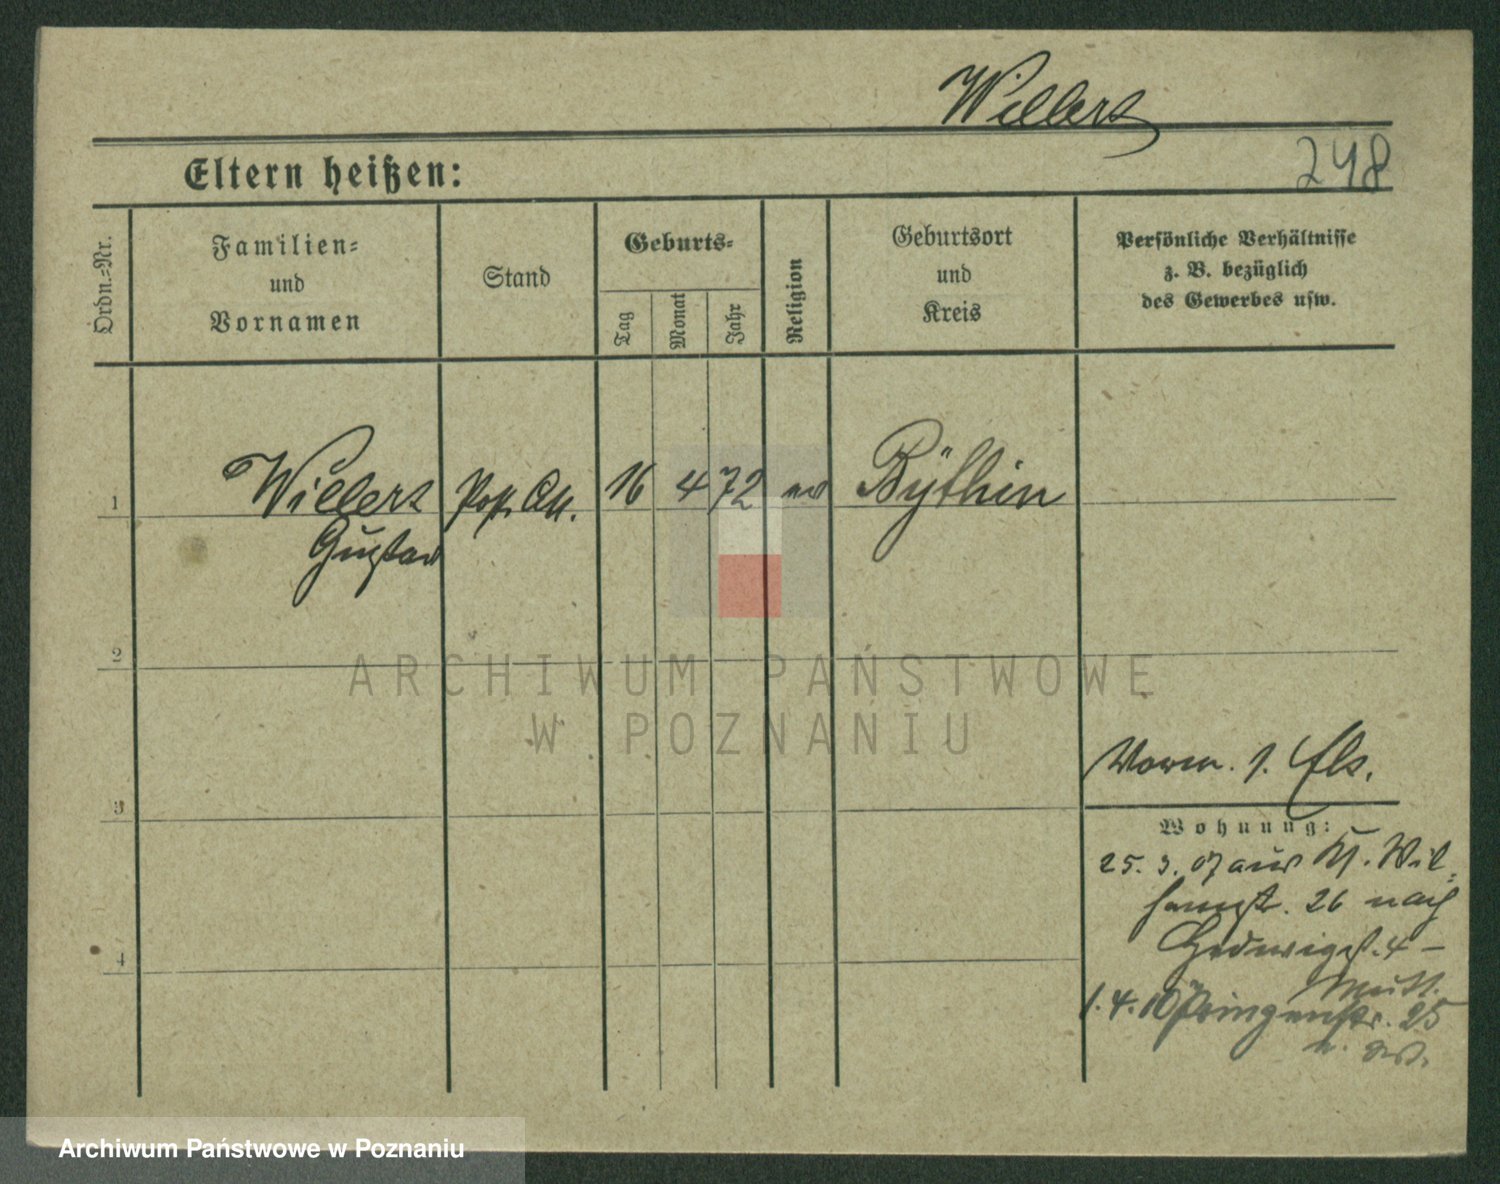 Willert
Eltern heißen:
248
Ordn.-Nr.
Familien-
und
Vornamen
Stand
Geburts-
Tag
Monat
Jahr
Religion
Geburtsort
und
Kreis
Persönliche Verhältnisse
z. B. bezüglich
des Gewerbes usw.
1
Willert
Gustav
16
4
72
ev
Bythin
2
ARCHIWUM PAŃSTWOWE
W POZNANIU
3
4
Wohnung:
25. 3. 07 aus Wil=
helmstr. 26 nach
Hedwigstr. 4 –
1. 4. 10
25
Archiwum Państwowe w Poznaniu